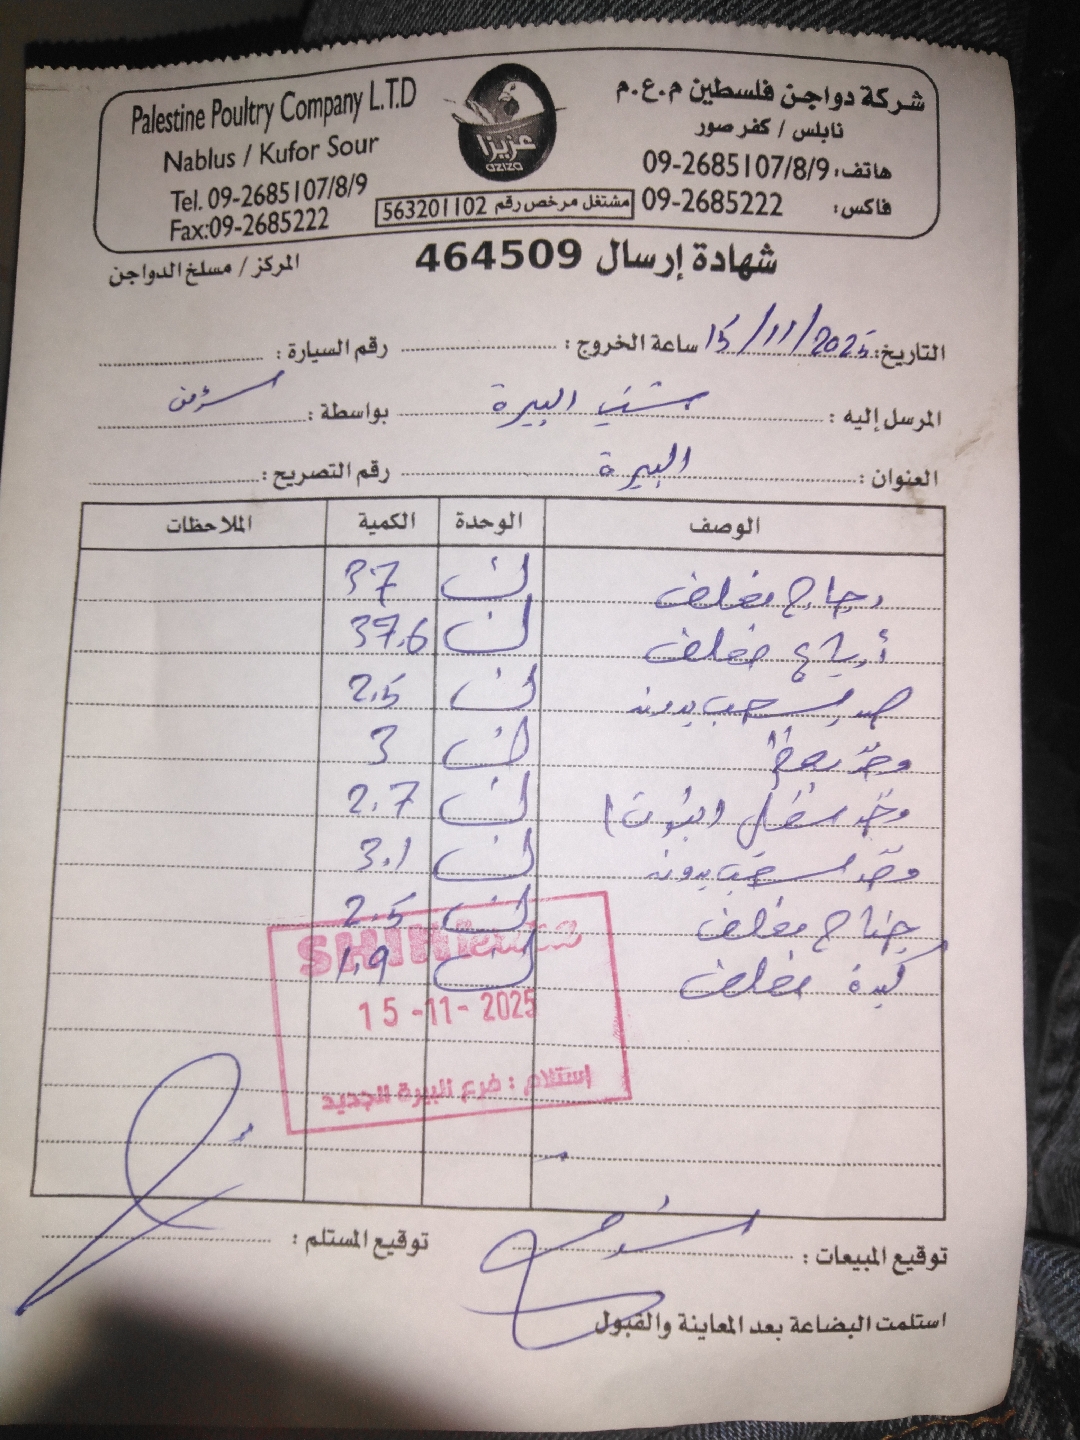 Palestine Poultry Company L.T.D
Nablus / Kufor Sour
Tel. 09-2685107/8/9
Fax:09-2685222
عزيزا
aziza
مشتغل مرخص رقم 563201102
شركة دواجن فلسطين م.ع.م
نابلس / كفر صور
هاتف: 09-2685107/8/9
فاكس: 09-2685222
شهادة إرسال 464509
المركز / مسلخ الدواجن
التاريخ: 15/11/2025 ساعة الخروج : رقم السيارة :
المرسل إليه : شني البيرة بواسطة : مؤمن
العنوان : البيرة رقم التصريح :
الوصف الوحدة الكمية الملاحظات
دجاج مغلف ك 37
أرباع مغلف ك 37.6
بدون ك 2.5
ك 3
ك 2.7
بدون ك 3.1
جناح مغلف ك 2.5
كبدة مغلف ك 1.9
SHINI
15-11-2025
إستلام : فرع البيرة الجديد
توقيع المبيعات : توقيع المستلم :
استلمت البضاعة بعد المعاينة والقبول